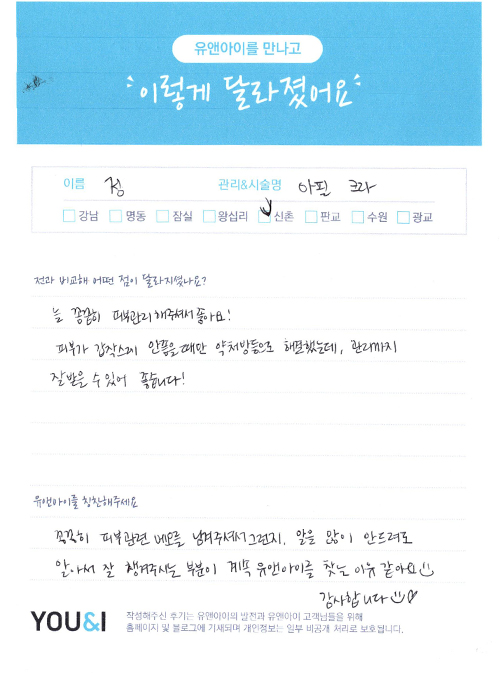 유앤아이를 만나고
이렇게 달라졌어요
이름 정 관리&시술명 아필 크라
강남 명동 잠실 왕십리 신촌 판교 수원 광교
전과 비교해 어떤 점이 달라지셨나요?
늘 꼼꼼히 피부관리해주셔서 좋아요!
피부가 갑작스레 안좋을때만 약처방등으로 해결했는데, 관리까지
잘받을 수 있어 좋습니다!
유앤아이를 칭찬해주세요
꼭꼭히 피부관련 메모를 남겨주셔서 그런지, 말을 많이 안드려도
알아서 잘 챙겨주시는 부분이 계속 유앤아이를 찾는 이유 같아요
감사합니다
YOU&I 작성해주신 후기는 유앤아이의 발전과 유앤아이 고객님들을 위해
홈페이지 및 블로그에 기재되며 개인정보는 일부 비공개 처리로 보호됩니다.